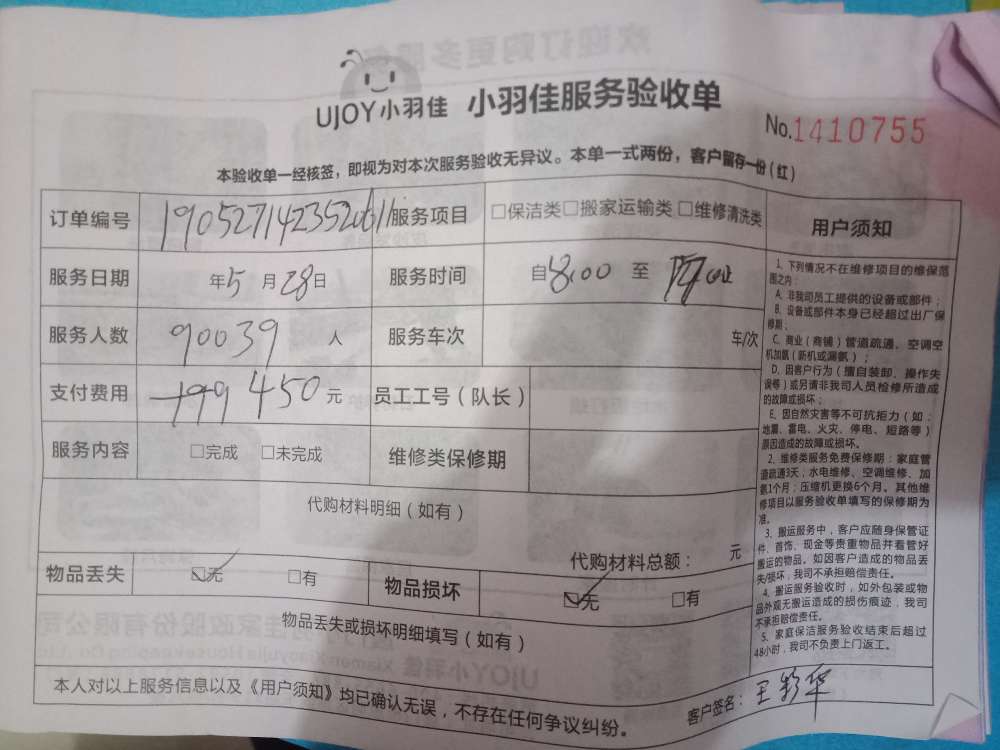 UJOY小羽佳 小羽佳服务验收单
No.1410755
本验收单一经核签，即视为对本次服务验收无异议。本单一式两份，客户留存一份（红）
订单编号 服务项目 □保洁类□搬家运输类 □维修清洗类
服务日期 年5月28日 服务时间 自8:00 至
服务人数 90039 人 服务车次 车/次
支付费用 450 元 员工工号（队长）
服务内容 □完成 □未完成 维修类保修期
代购材料明细（如有）
代购材料总额： 元
物品丢失 ☑无 □有 物品损坏 ☑无 □有
物品丢失或损坏明细填写（如有）
本人对以上服务信息以及《用户须知》均已确认无误，不存在任何争议纠纷。 客户签名：王彩华
用户须知
1、下列情况不在维修项目的维保范
围之内：
A、非我司员工提供的设备或部件；
B、设备或部件本身已经超过出厂保
修期；
C、商业（商铺）管道疏通、空调空
机加氟（新机或漏氟）；
D、因客户行为（擅自装卸、操作失
误等）或另请非我司人员检修所造成
的故障或损坏；
E、因自然灾害等不可抗拒力（如：
地震、雷电、火灾、停电、短路等）
原因造成的故障或损坏。
2、维修类服务免费保修期：家庭管
道疏通3天；水电维修、空调维修、加
氟1个月；压缩机更换6个月。其他维
修项目以服务验收单填写的保修期为
准。
3、搬运服务中，客户应随身保管证
件、首饰、现金等贵重物品并看管好
搬运的物品。如因客户造成的物品丢
失/损坏，我司不承担赔偿责任。
4、搬运服务验收时，如外包装或物
品外观无搬运造成的损伤痕迹，我司
不承担赔偿责任。
5、家庭保洁服务验收结束后超过
48小时，我司不负责上门返工。